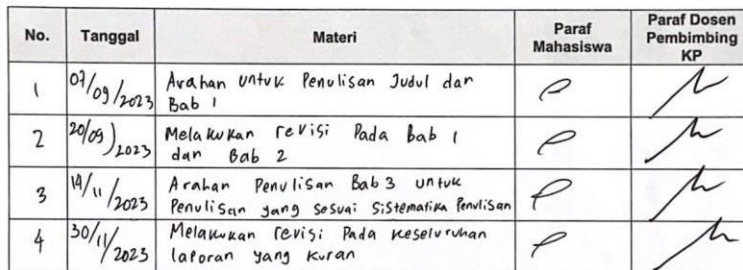 No. Tanggal Materi Paraf Mahasiswa Paraf Dosen Pembimbing KP
1 07/09/2023 Arahan untuk Penulisan Judul dan
Bab 1
2 20/09/2023 Melakukan revisi Pada Bab 1
dan Bab 2
3 14/11/2023 Arahan Penulisan Bab 3 untuk
Penulisan yang sesuai sistematika Penulisan
4 30/11/2023 Melakukan revisi Pada keseluruhan
laporan yang kuran